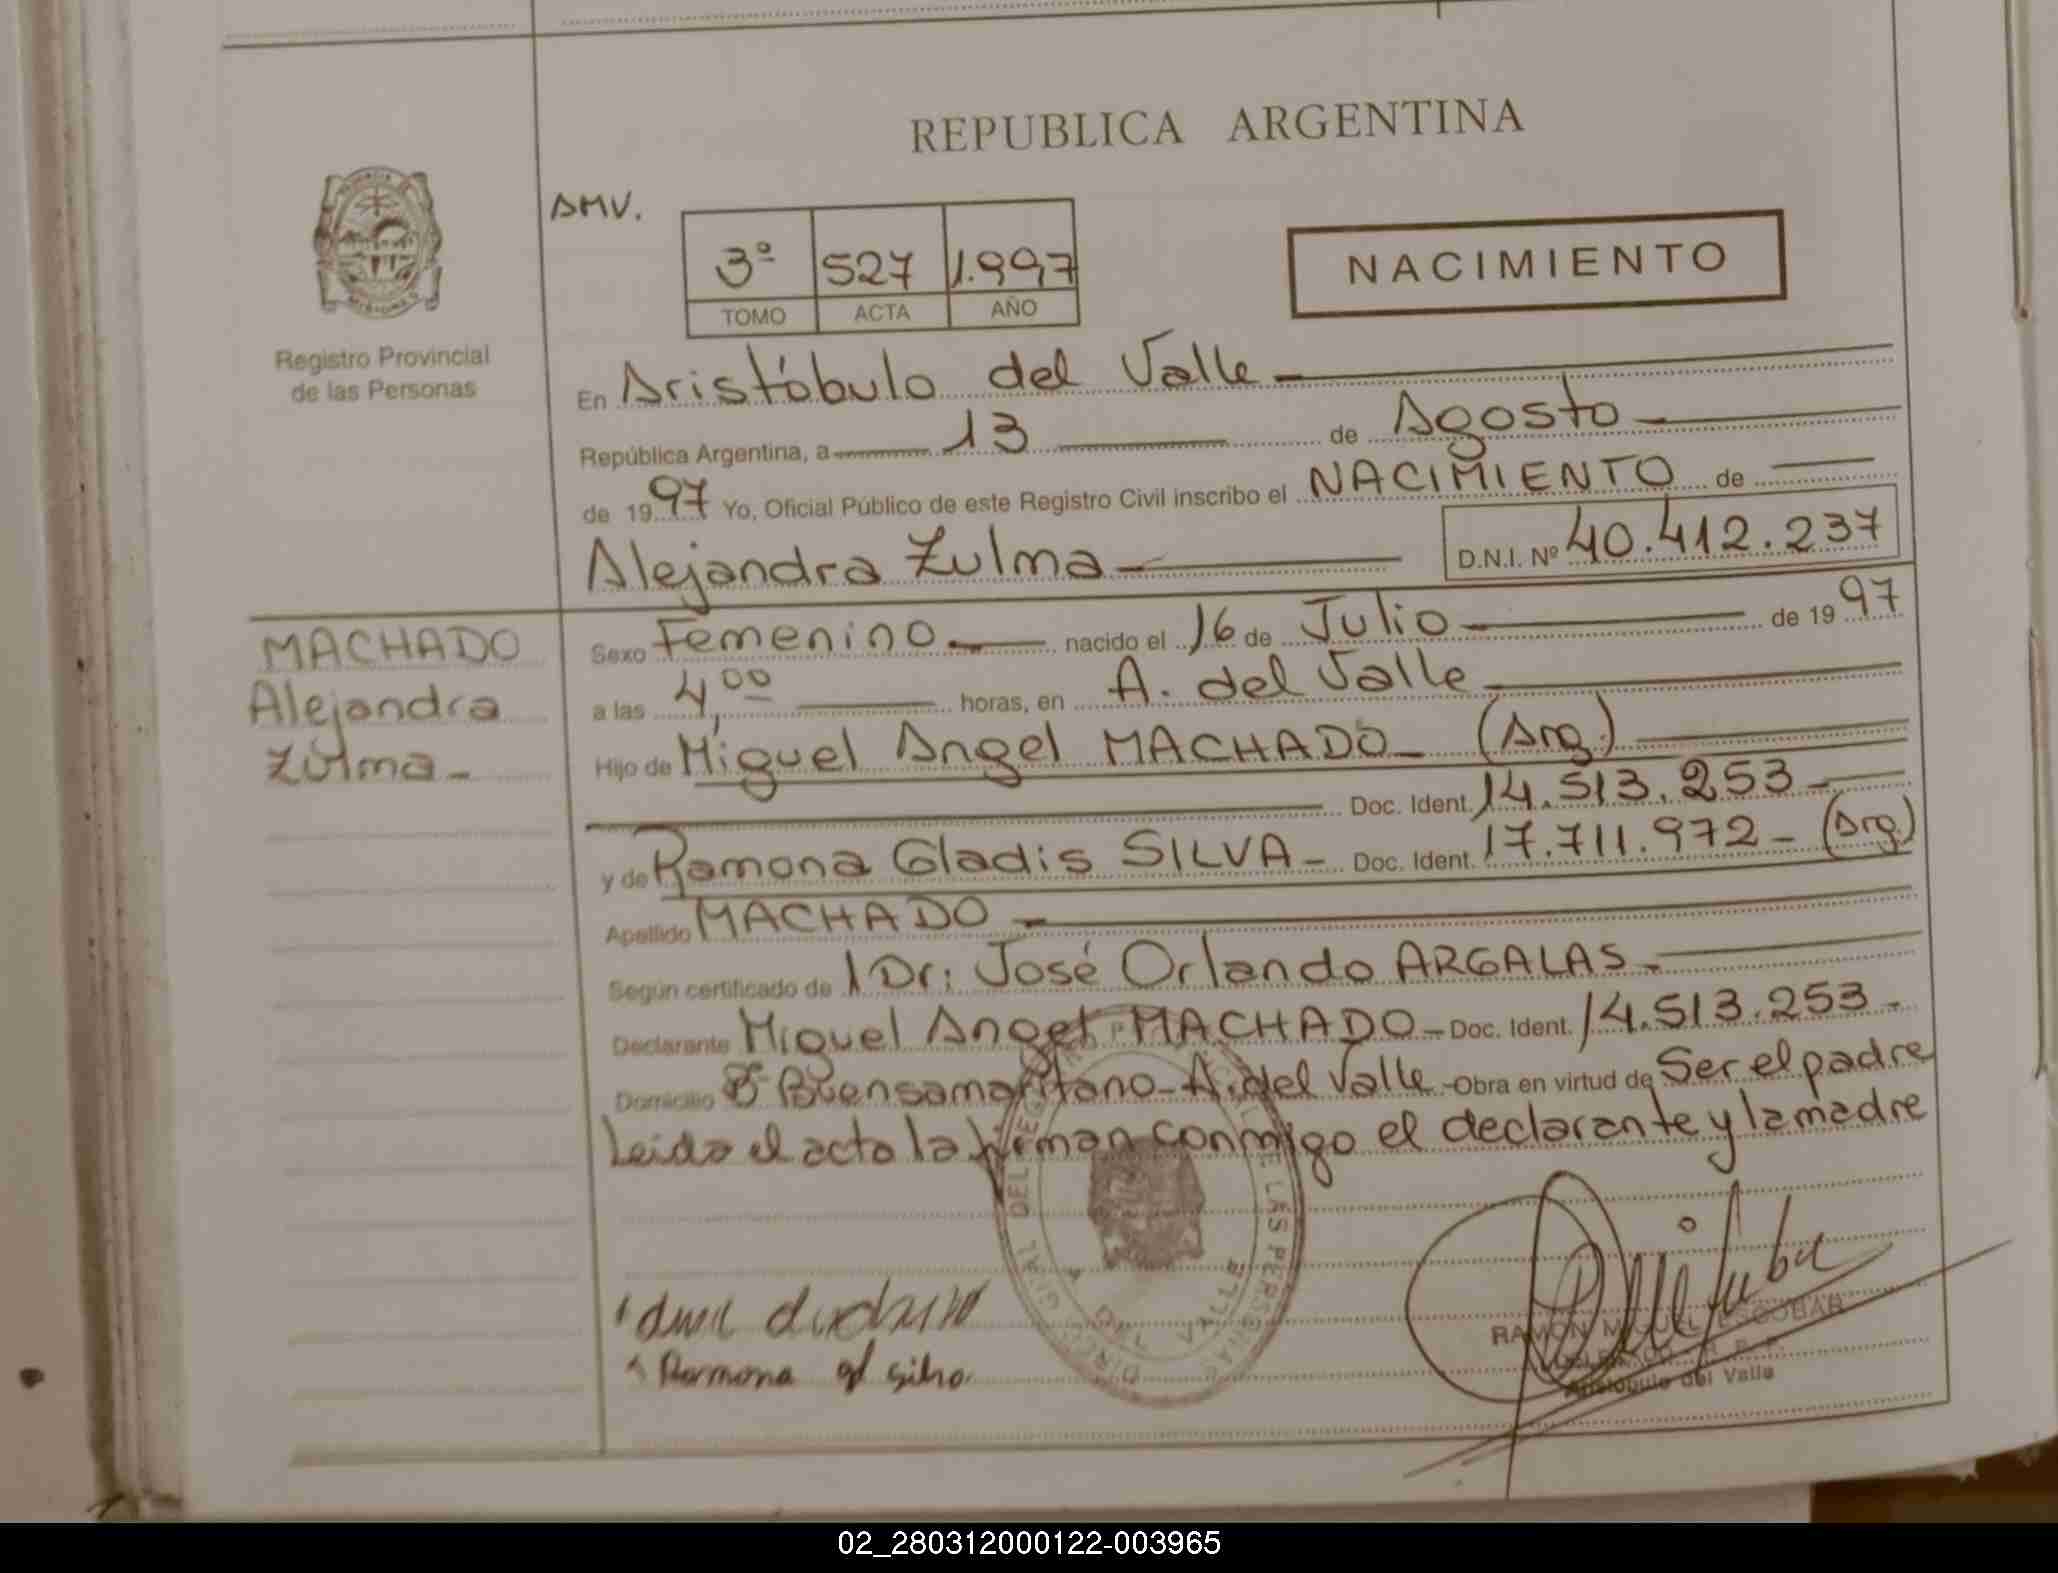 REPUBLICA ARGENTINA
AMV.
3º 527 1.997
TOMO ACTA AÑO
NACIMIENTO
Registro Provincial
de las Personas
En Aristóbulo del Valle
República Argentina, a 13 de Agosto
de 1997 Yo, Oficial Público de este Registro Civil inscribo el NACIMIENTO de
Alejandra Zulma D.N.I. Nº 40.412.237
MACHADO
Alejandra
Zulma
Sexo Femenino nacido el 16 de Julio de 1997
a las 4,00 horas, en A. del Valle
Hijo de Miguel Angel MACHADO (Arg.)
Doc. Ident. 14.513.253
y de Ramona Gladis SILVA Doc. Ident. 17.711.972 (Arg.)
Apellido MACHADO
Según certificado de Dr: José Orlando ARGALAS
Declarante Miguel Angel MACHADO Doc. Ident. 14.513.253
Domicilio Bº Buensamaritano-A.del Valle Obra en virtud de Ser el padre
Leida el acta la firman conmigo el declarante y la madre
Ramona gl silva
RAMON MIGUEL ESCOBAR
Aristóbulo del Valle
DEL VALLE
02_280312000122-003965